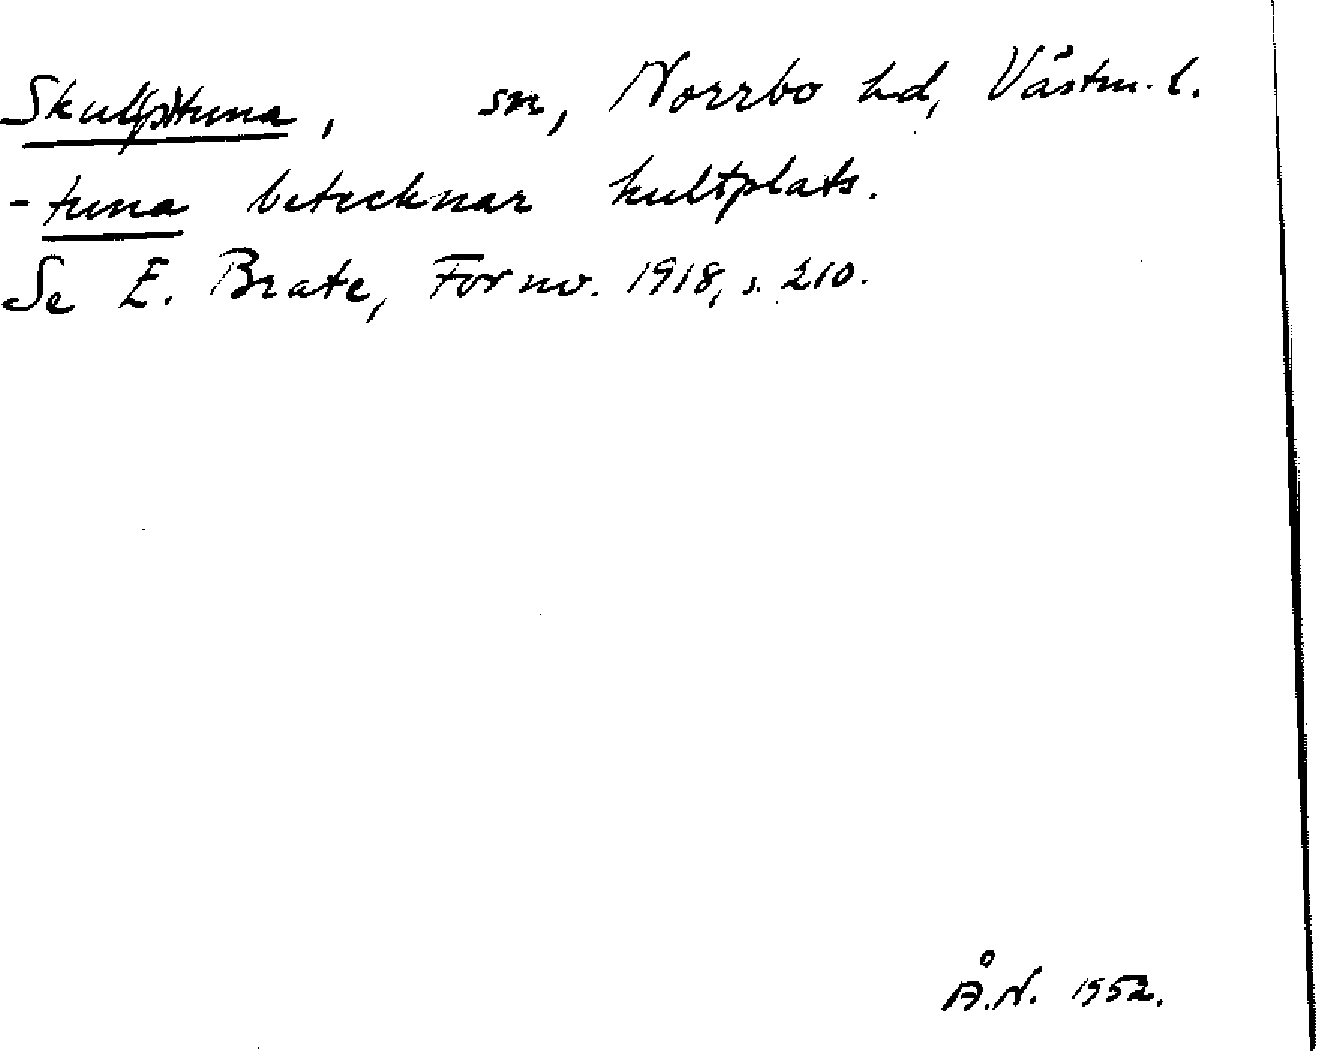 Skultuna, sn, Norrbo hd, Västm. l.
-tuna betecknar kultplats.
Se E. Brate, Fornv. 1918, s. 210.
Å.N. 1952.